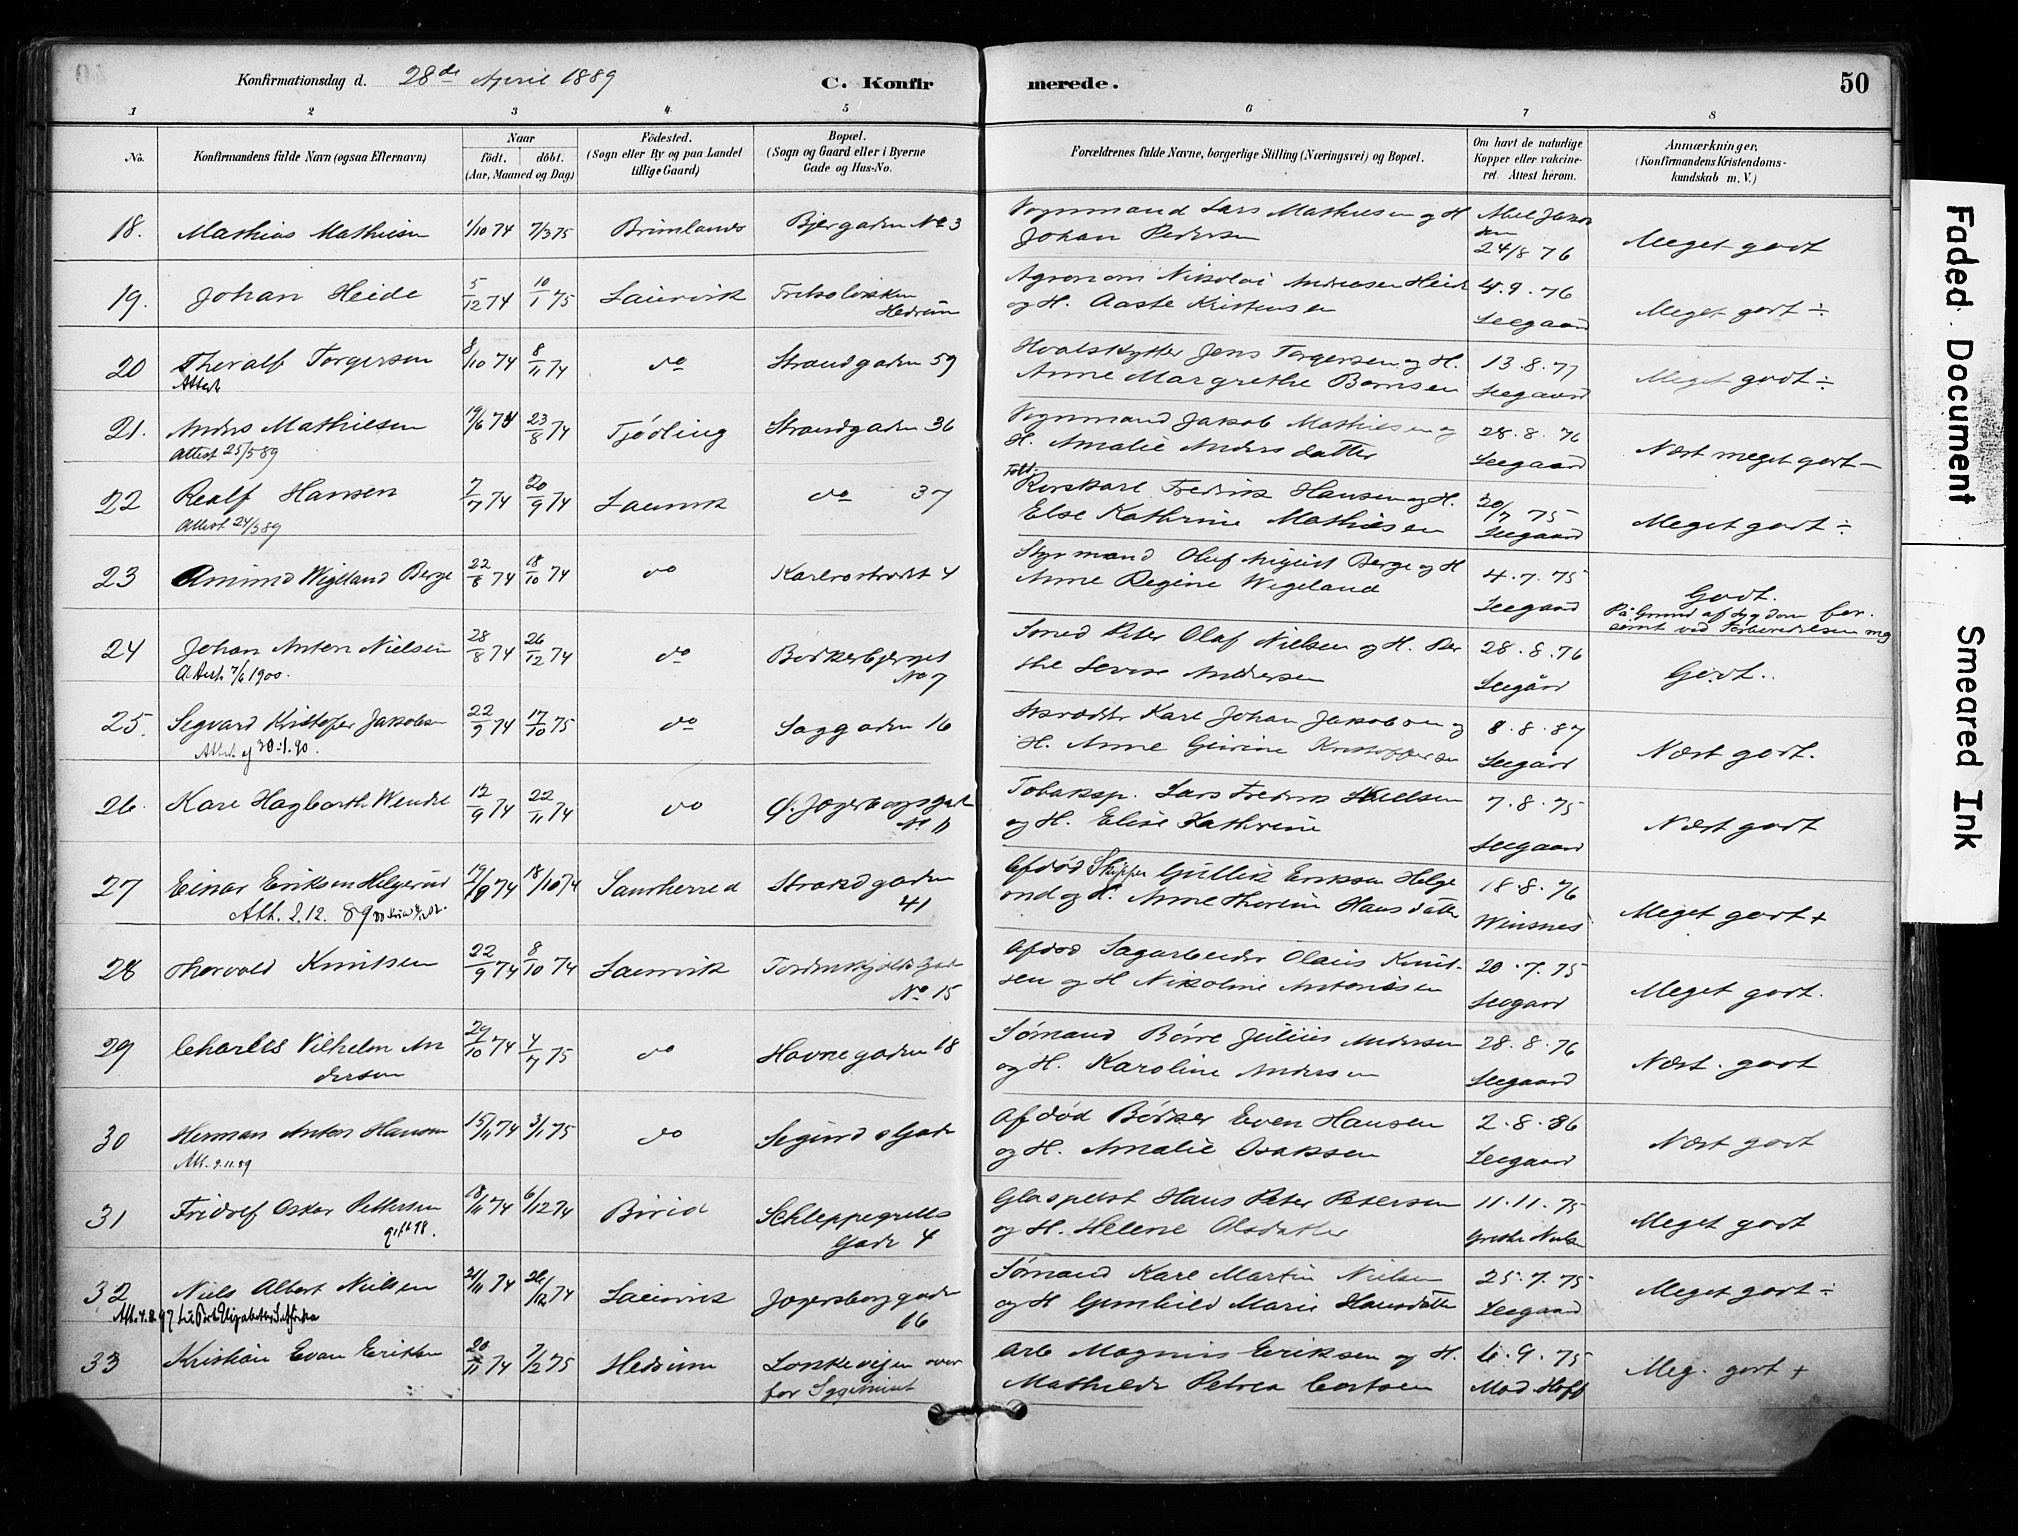 Konfirmationsdag d. 28de April 1889 C. Konfirmerede. 50
1 2 3 4 5 6 7 8
No. Konfirmandens fulde Navn (ogsaa Efternavn) Naar födt. döbt. (Aar, Maaned og Dag) Födested. (Sogn eller By og paa Landet tillige Gaard) Bopæl. (Sogn og Gaard eller i Byerne Gade og Hus-No. Forældrenes fulde Navne, borgerlige Stilling (Næringsvei) og Bopæl. Om havt de naturlige Kopper eller vakcineret. Attest herom. Anmærkninger. (Konfirmandens Kristendomskundskab m. V.)
18. Mathias Mathiesen 1/10 74 7/3 75 Brunlanes Bjergaden No 3 Vognmand Lars Mathiesen og H. Johan Pedersen 24/8 76 Meget godt
19. Johan Heide 5/12 74 10/1 75 Laurvik Hedrum Agronom Nikolai Andresen Heide og H. Aaste Kristensen 4.9.76 Seegaard Meget godt ÷
20 Thoralf Torgersen 8/10 74 8/11 74 do Strandgaden 59 Hvalskytter Jens Torgersen og H. Anne Margrethe Berntsen 13.8.77 Seegaard Meget godt ÷
Attest
21. Anders Mathiesen 19/6 74 23/8 74 Tjødling Strandgaden 36 Vognmand Jakob Mathiesen og H. Amalie Andersdatter 28.8.76 Seegaard Næst meget godt –
Attest 25/5 89
22 Realf Hansen 7/7 74 20/9 74 Laurvik do 37 Told. Rorskarl Fredrik Hansen og H. Else Kathrine Mathiesen 20/7 75 Seegaard Meget godt ÷
Attest 24/5 89
23 Amund Wigeland Berge 22/8 74 18/10 74 do Karlrostrædt 4 Styrmand Oluf August Berge og H. Anne Regine Wigeland 4.7.75 Seegaard Godt.
På Grund af Sygdom forsømt ved Forberedelsen
24 Johan Anton Nielsen 28/8 74 26/12 74 do Bødkerbjerget No 7 Smed Peter Olaf Nielsen og H. Berthe Lovise Andersen 28.8.76 Seegård Godt.
Attest 7/6 1900.
25. Segvard Kristofer Jakobsen 22/9 74 17/10 75 do Saggaden 16 Skrædder Karl Johan Jakobsen og H. Anne Kristoffersen 8.8.87 Seegård Næst godt.
Attest 30.1.90.
26. Karl Hagbarth Wendel 12/9 74 22/11 74 do Ø. Jegersborgsgad No 11 Tobaksp. Lars Fredrik og H. Elise Kathrine 7.8.75 Seegaard Næst godt
27 Einar Eriksen Helgerud 19/9 74 18/10 74 Sandherred Strandgaden 41 Afdød Skipper Gullik Eriksen Helgerud og H. Anne Thorine Hansdatter 18.8.76 Winsnes Meget godt +
Att. 2.12.89
28 Thorvald Knutsen 22/9 74 8/10 74 Laurvik Tordenskjolds Gade No 15 Afdød Sagarbeider Olaus Knutsen og H Nikoline Antonisen 20.7.75 Seegaard Meget godt.
29 Charles Vilhelm Andersen 29/10 74 4/7 75 do Havnegaden 18 Sømand Børre Julius Andersen og H. Karoline Andersen 28.8.76 Seegaard Næst godt
30 Herman Anton Hansen 15/11 74 3/1 75 do Sigurds Gade Afdød Bødker Even Hansen og H. Amalie Isaksen 2.8.86 Seegaard Næst godt
Att. 9.11.89
31 Fridolf Oskar Pettersen 18/11 74 6/12 74 Birid Schleppegrells Gade 4 Glaspust Hans Peter Petersen og H. Helene Olsdatter 11.11.75 Meget godt
32 Niels Albert Nielsen 21/11 74 26/12 74 Laurvik Jegersborggade 16 Sømand Karl Martin Nielsen og H Gunhild Marie Hansdatter 25.7.75 Seegaard Meget godt ÷
Att. 4.8.97 til Port Elizabeth
33 Kristian Evan Eriksen 20/11 74 7/2 75 Hedrum over for Arb Magnus Eriksen og H. Mathilde Petrea 6.9.75 Mad. Hoff Meg. godt +
Faded Document
Smeared Ink